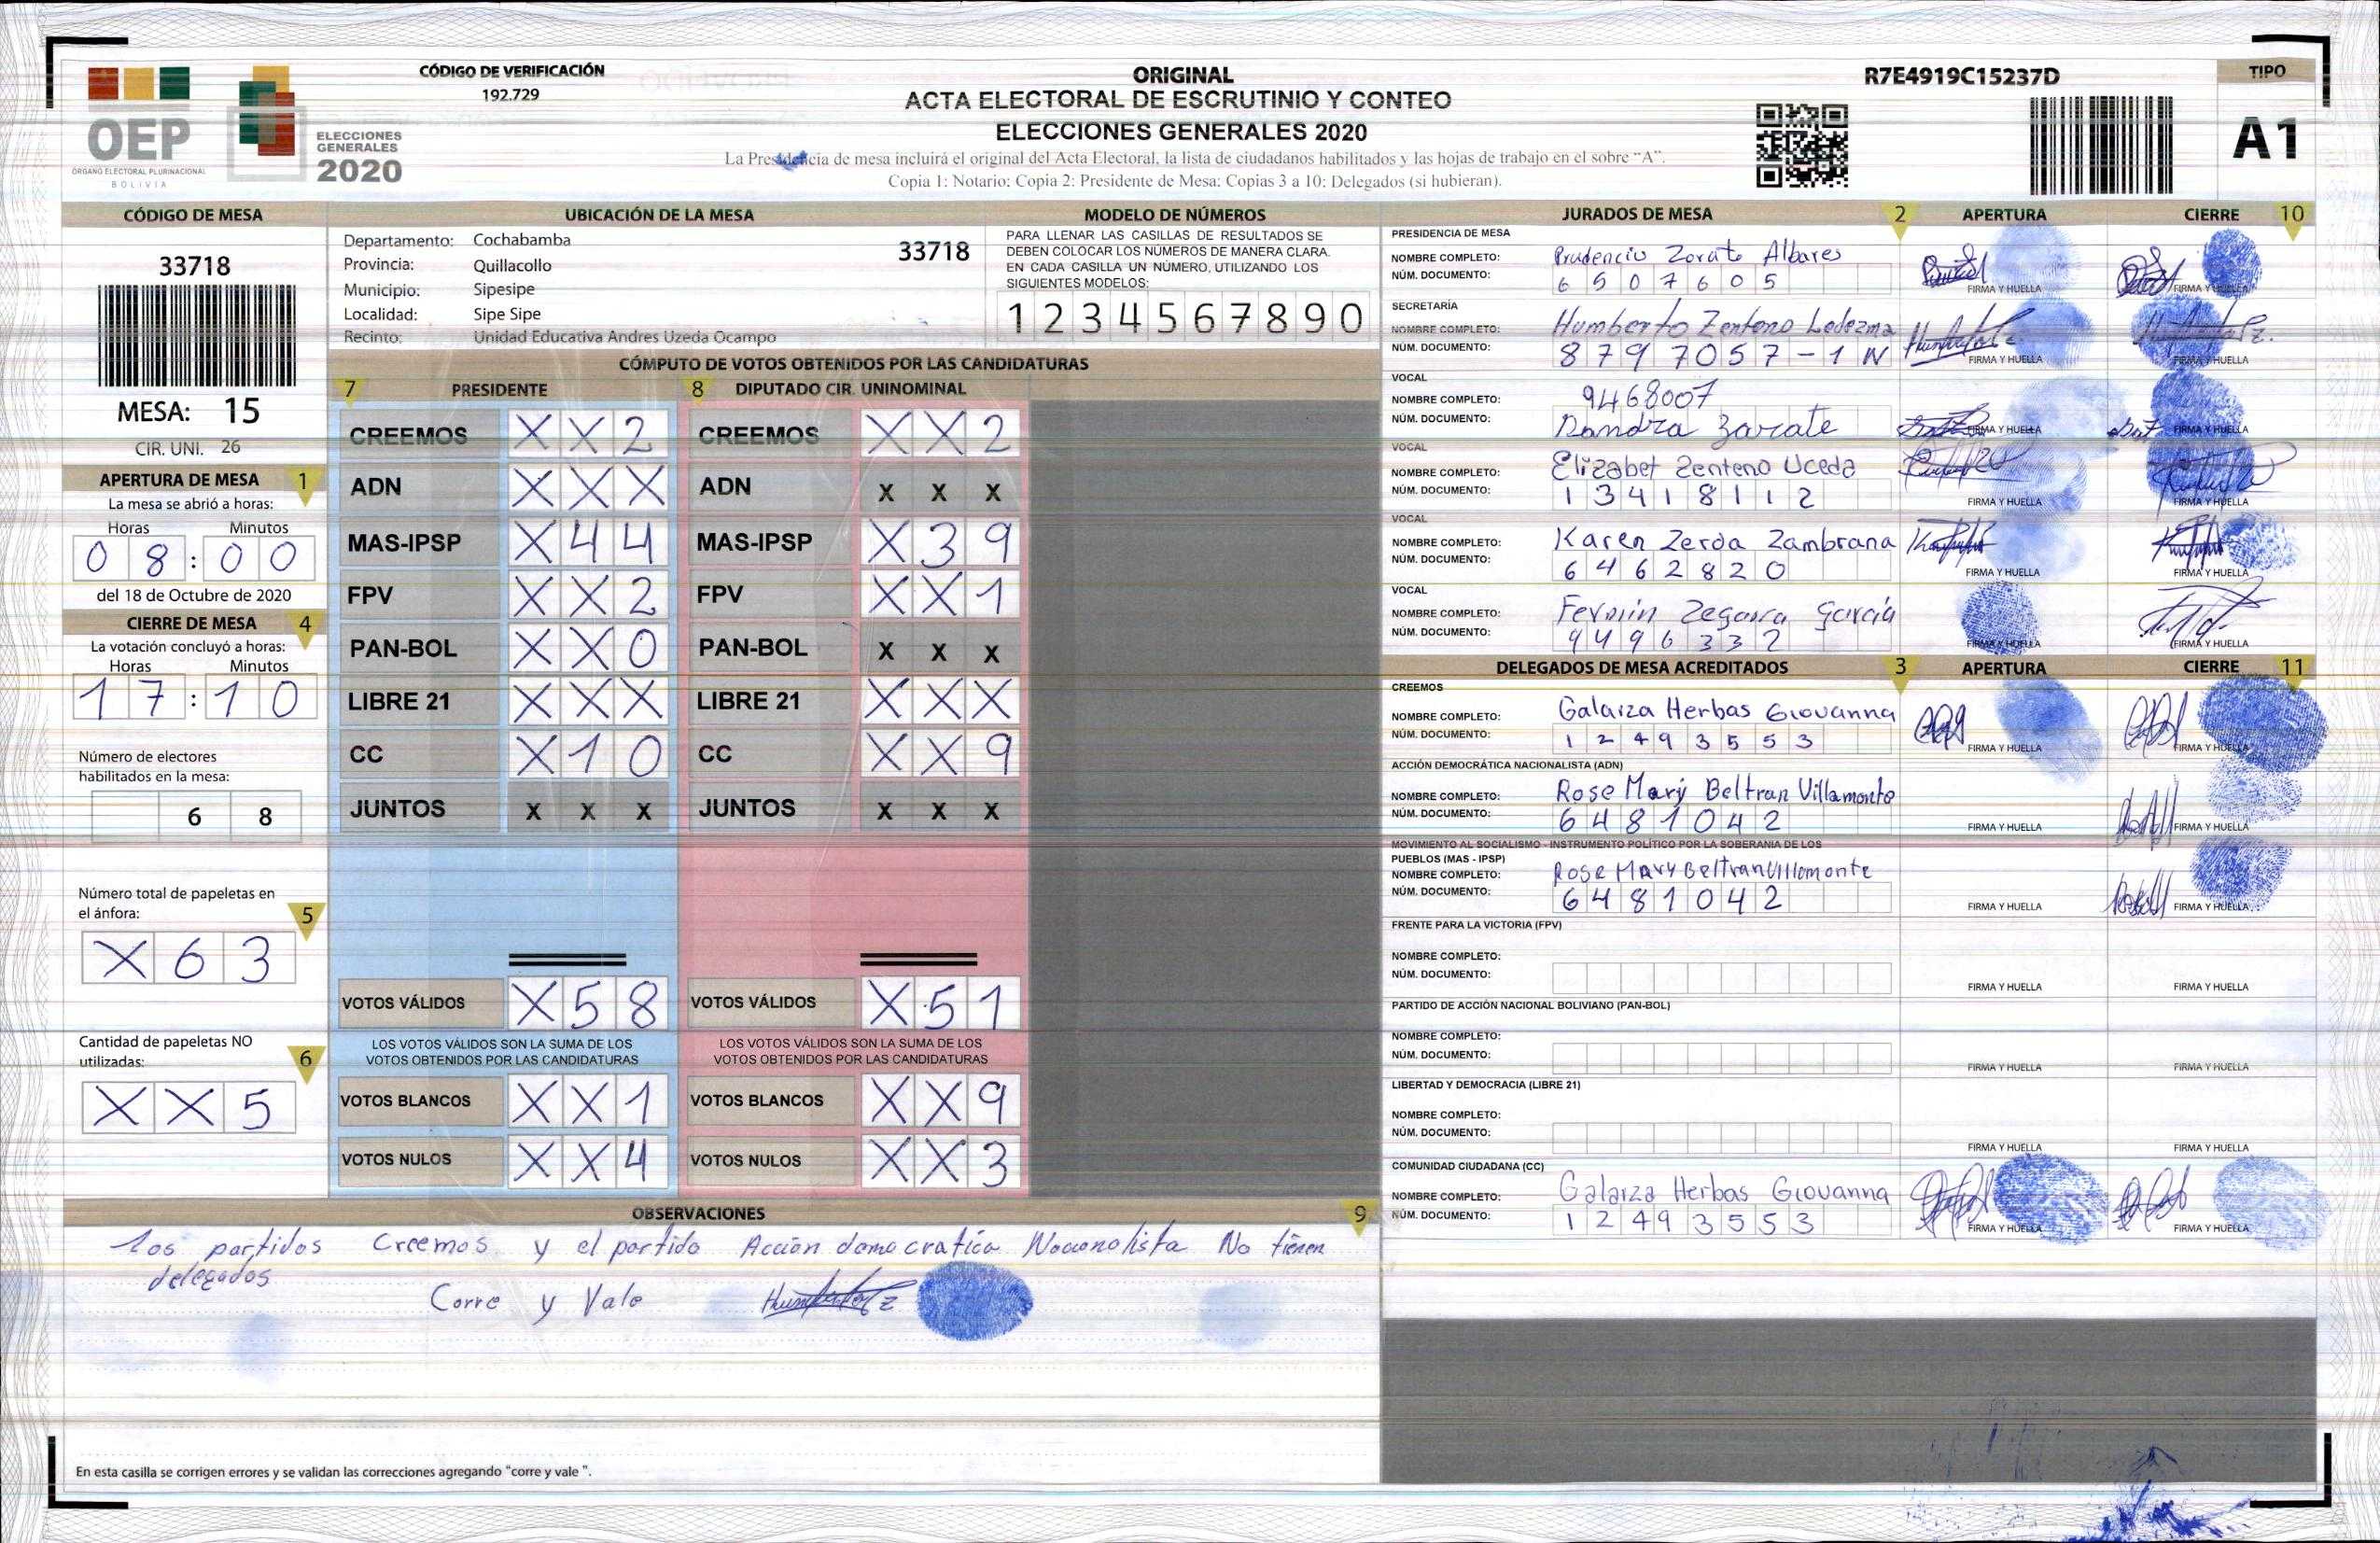 OEP
ÓRGANO ELECTORAL PLURINACIONAL
BOLIVIA
ELECCIONES
GENERALES
2020
CÓDIGO DE VERIFICACIÓN
192.729
ORIGINAL
ACTA ELECTORAL DE ESCRUTINIO Y CONTEO
ELECCIONES GENERALES 2020
La Presidencia de mesa incluirá el original del Acta Electoral, la lista de ciudadanos habilitados y las hojas de trabajo en el sobre "A".
Copia 1: Notario; Copia 2: Presidente de Mesa; Copias 3 a 10: Delegados (si hubieran).
R7E4919C15237D
TIPO
A1
CÓDIGO DE MESA
33718
MESA: 15
CIR. UNI. 26
APERTURA DE MESA 1
La mesa se abrió a horas:
Horas Minutos
0 8 : 0 0
del 18 de Octubre de 2020
CIERRE DE MESA 4
La votación concluyó a horas:
Horas Minutos
1 7 : 1 0
Número de electores
habilitados en la mesa:
6 8
Número total de papeletas en
el ánfora: 5
X 6 3
Cantidad de papeletas NO
utilizadas: 6
X X 5
UBICACIÓN DE LA MESA
Departamento: Cochabamba 33718
Provincia: Quillacollo
Municipio: Sipesipe
Localidad: Sipe Sipe
Recinto: Unidad Educativa Andres Uzeda Ocampo
MODELO DE NÚMEROS
PARA LLENAR LAS CASILLAS DE RESULTADOS SE
DEBEN COLOCAR LOS NÚMEROS DE MANERA CLARA.
EN CADA CASILLA UN NÚMERO, UTILIZANDO LOS
SIGUIENTES MODELOS:
1 2 3 4 5 6 7 8 9 0
CÓMPUTO DE VOTOS OBTENIDOS POR LAS CANDIDATURAS
7 PRESIDENTE 8 DIPUTADO CIR. UNINOMINAL
CREEMOS X X 2 CREEMOS X X 2
ADN X X X ADN X X X
MAS-IPSP X 4 4 MAS-IPSP X 3 9
FPV X X 2 FPV X X 1
PAN-BOL X X 0 PAN-BOL X X X
LIBRE 21 X X X LIBRE 21 X X X
CC X 1 0 CC X X 9
JUNTOS X X X JUNTOS X X X
VOTOS VÁLIDOS X 5 8 VOTOS VÁLIDOS X 5 1
LOS VOTOS VÁLIDOS SON LA SUMA DE LOS LOS VOTOS VÁLIDOS SON LA SUMA DE LOS
VOTOS OBTENIDOS POR LAS CANDIDATURAS VOTOS OBTENIDOS POR LAS CANDIDATURAS
VOTOS BLANCOS X X 1 VOTOS BLANCOS X X 9
VOTOS NULOS X X 4 VOTOS NULOS X X 3
OBSERVACIONES 9
Los partidos Creemos y el partido Acción democratica Nacionalista No tienen
delegados
Corre y Vale
En esta casilla se corrigen errores y se validan las correcciones agregando "corre y vale ".
JURADOS DE MESA 2 APERTURA CIERRE 10
PRESIDENCIA DE MESA
NOMBRE COMPLETO: Prudencio Zarate Albares
NÚM. DOCUMENTO: 6 5 0 7 6 0 5 FIRMA Y HUELLA FIRMA Y HUELLA
SECRETARÍA
NOMBRE COMPLETO: Humberto Zenteno Ledezma
NÚM. DOCUMENTO: 8 7 9 7 0 5 7 - 1 N FIRMA Y HUELLA FIRMA Y HUELLA
VOCAL
NOMBRE COMPLETO: 9468007
NÚM. DOCUMENTO: Sandra Zarate FIRMA Y HUELLA FIRMA Y HUELLA
VOCAL
NOMBRE COMPLETO: Elizabet Zenteno Uceda
NÚM. DOCUMENTO: 1 3 4 1 8 1 1 2 FIRMA Y HUELLA FIRMA Y HUELLA
VOCAL
NOMBRE COMPLETO: Karen Zerda Zambrana
NÚM. DOCUMENTO: 6 4 6 2 8 2 0 FIRMA Y HUELLA FIRMA Y HUELLA
VOCAL
NOMBRE COMPLETO: Fermin Zegarra García
NÚM. DOCUMENTO: 9 4 9 6 3 3 2 FIRMA Y HUELLA FIRMA Y HUELLA
DELEGADOS DE MESA ACREDITADOS 3 APERTURA CIERRE 11
CREEMOS
NOMBRE COMPLETO: Galarza Herbas Giovanna
NÚM. DOCUMENTO: 1 2 4 9 3 5 5 3 FIRMA Y HUELLA FIRMA Y HUELLA
ACCIÓN DEMOCRÁTICA NACIONALISTA (ADN)
NOMBRE COMPLETO: Rose Mary Beltran Villamonte
NÚM. DOCUMENTO: 6 4 8 1 0 4 2 FIRMA Y HUELLA FIRMA Y HUELLA
MOVIMIENTO AL SOCIALISMO - INSTRUMENTO POLÍTICO POR LA SOBERANIA DE LOS
PUEBLOS (MAS - IPSP)
NOMBRE COMPLETO: Rose Mary Beltran Villamonte
NÚM. DOCUMENTO: 6 4 8 1 0 4 2 FIRMA Y HUELLA FIRMA Y HUELLA
FRENTE PARA LA VICTORIA (FPV)
NOMBRE COMPLETO:
NÚM. DOCUMENTO: FIRMA Y HUELLA FIRMA Y HUELLA
PARTIDO DE ACCIÓN NACIONAL BOLIVIANO (PAN-BOL)
NOMBRE COMPLETO:
NÚM. DOCUMENTO: FIRMA Y HUELLA FIRMA Y HUELLA
LIBERTAD Y DEMOCRACIA (LIBRE 21)
NOMBRE COMPLETO:
NÚM. DOCUMENTO: FIRMA Y HUELLA FIRMA Y HUELLA
COMUNIDAD CIUDADANA (CC)
NOMBRE COMPLETO: Galarza Herbas Giovanna
NÚM. DOCUMENTO: 1 2 4 9 3 5 5 3 FIRMA Y HUELLA FIRMA Y HUELLA